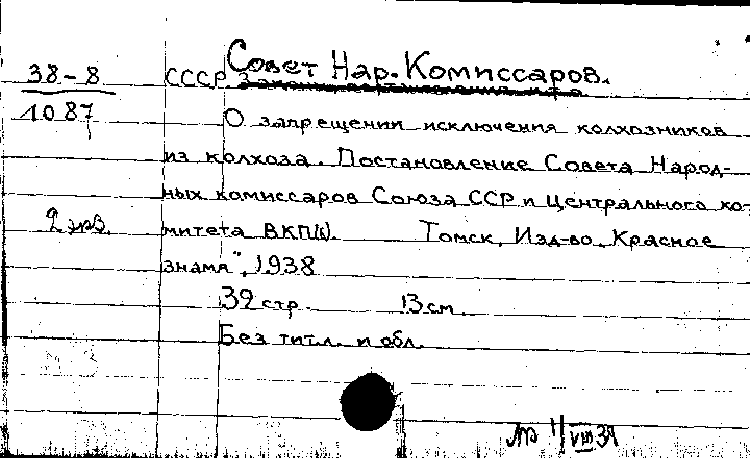 Совет Нар. Комиссаров.
38-8 СССР
1087
О запрещении исключения колхозников
из колхоза. Постановление Совета Народ-
ных комиссаров Союза ССР и Центрального ко-
2 экз. митета ВКП(б). Томск, Изд-во "Красное
знамя", 1938
39 стр. 13 см.
Без титл. и обл.
VIII 39